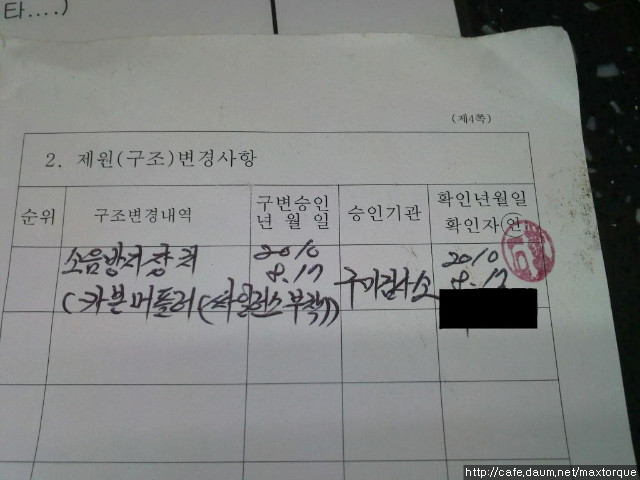 타....)
(제4쪽)
2. 제원(구조)변경사항
순위 구조변경내역 구변승인 년 월 일 승인기관 확인년월일 확인자(인)
소음방지장치 2010 8.17 구미검사소 2010 8.17
(카본머플러(사일런스부착))
http://cafe.daum.net/maxtorque